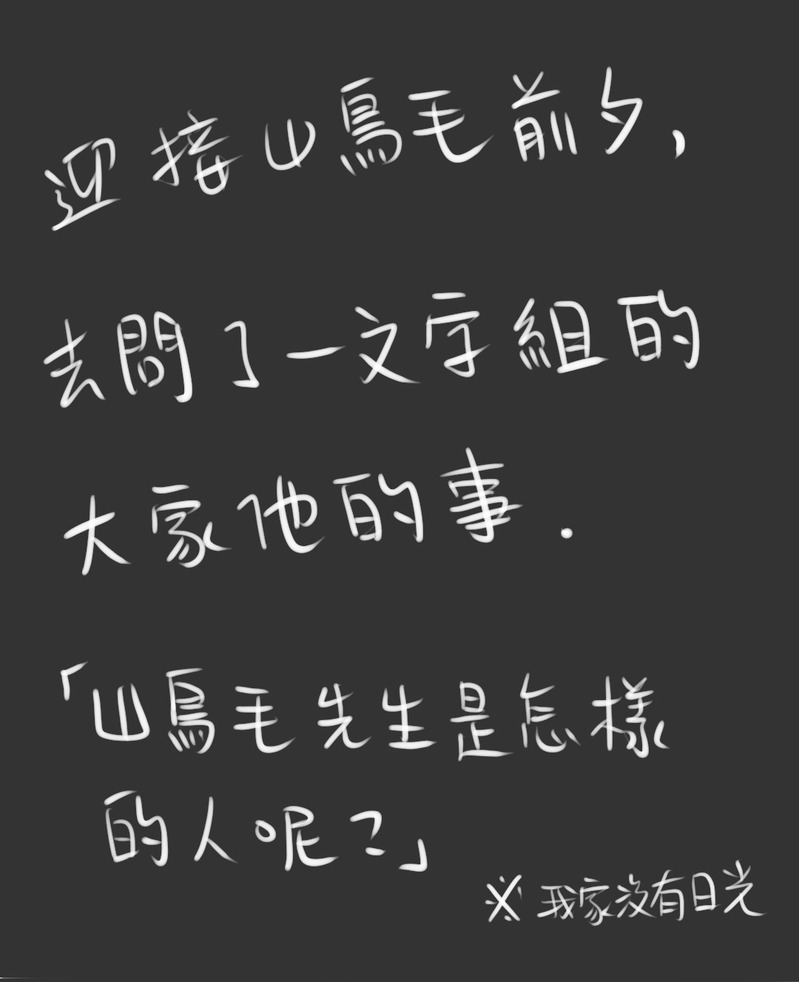 迎接山鳥毛前夕,
去問了一文字組的
大家他的事.
「山鳥毛先生是怎樣
的人呢?」
※我家沒有日光